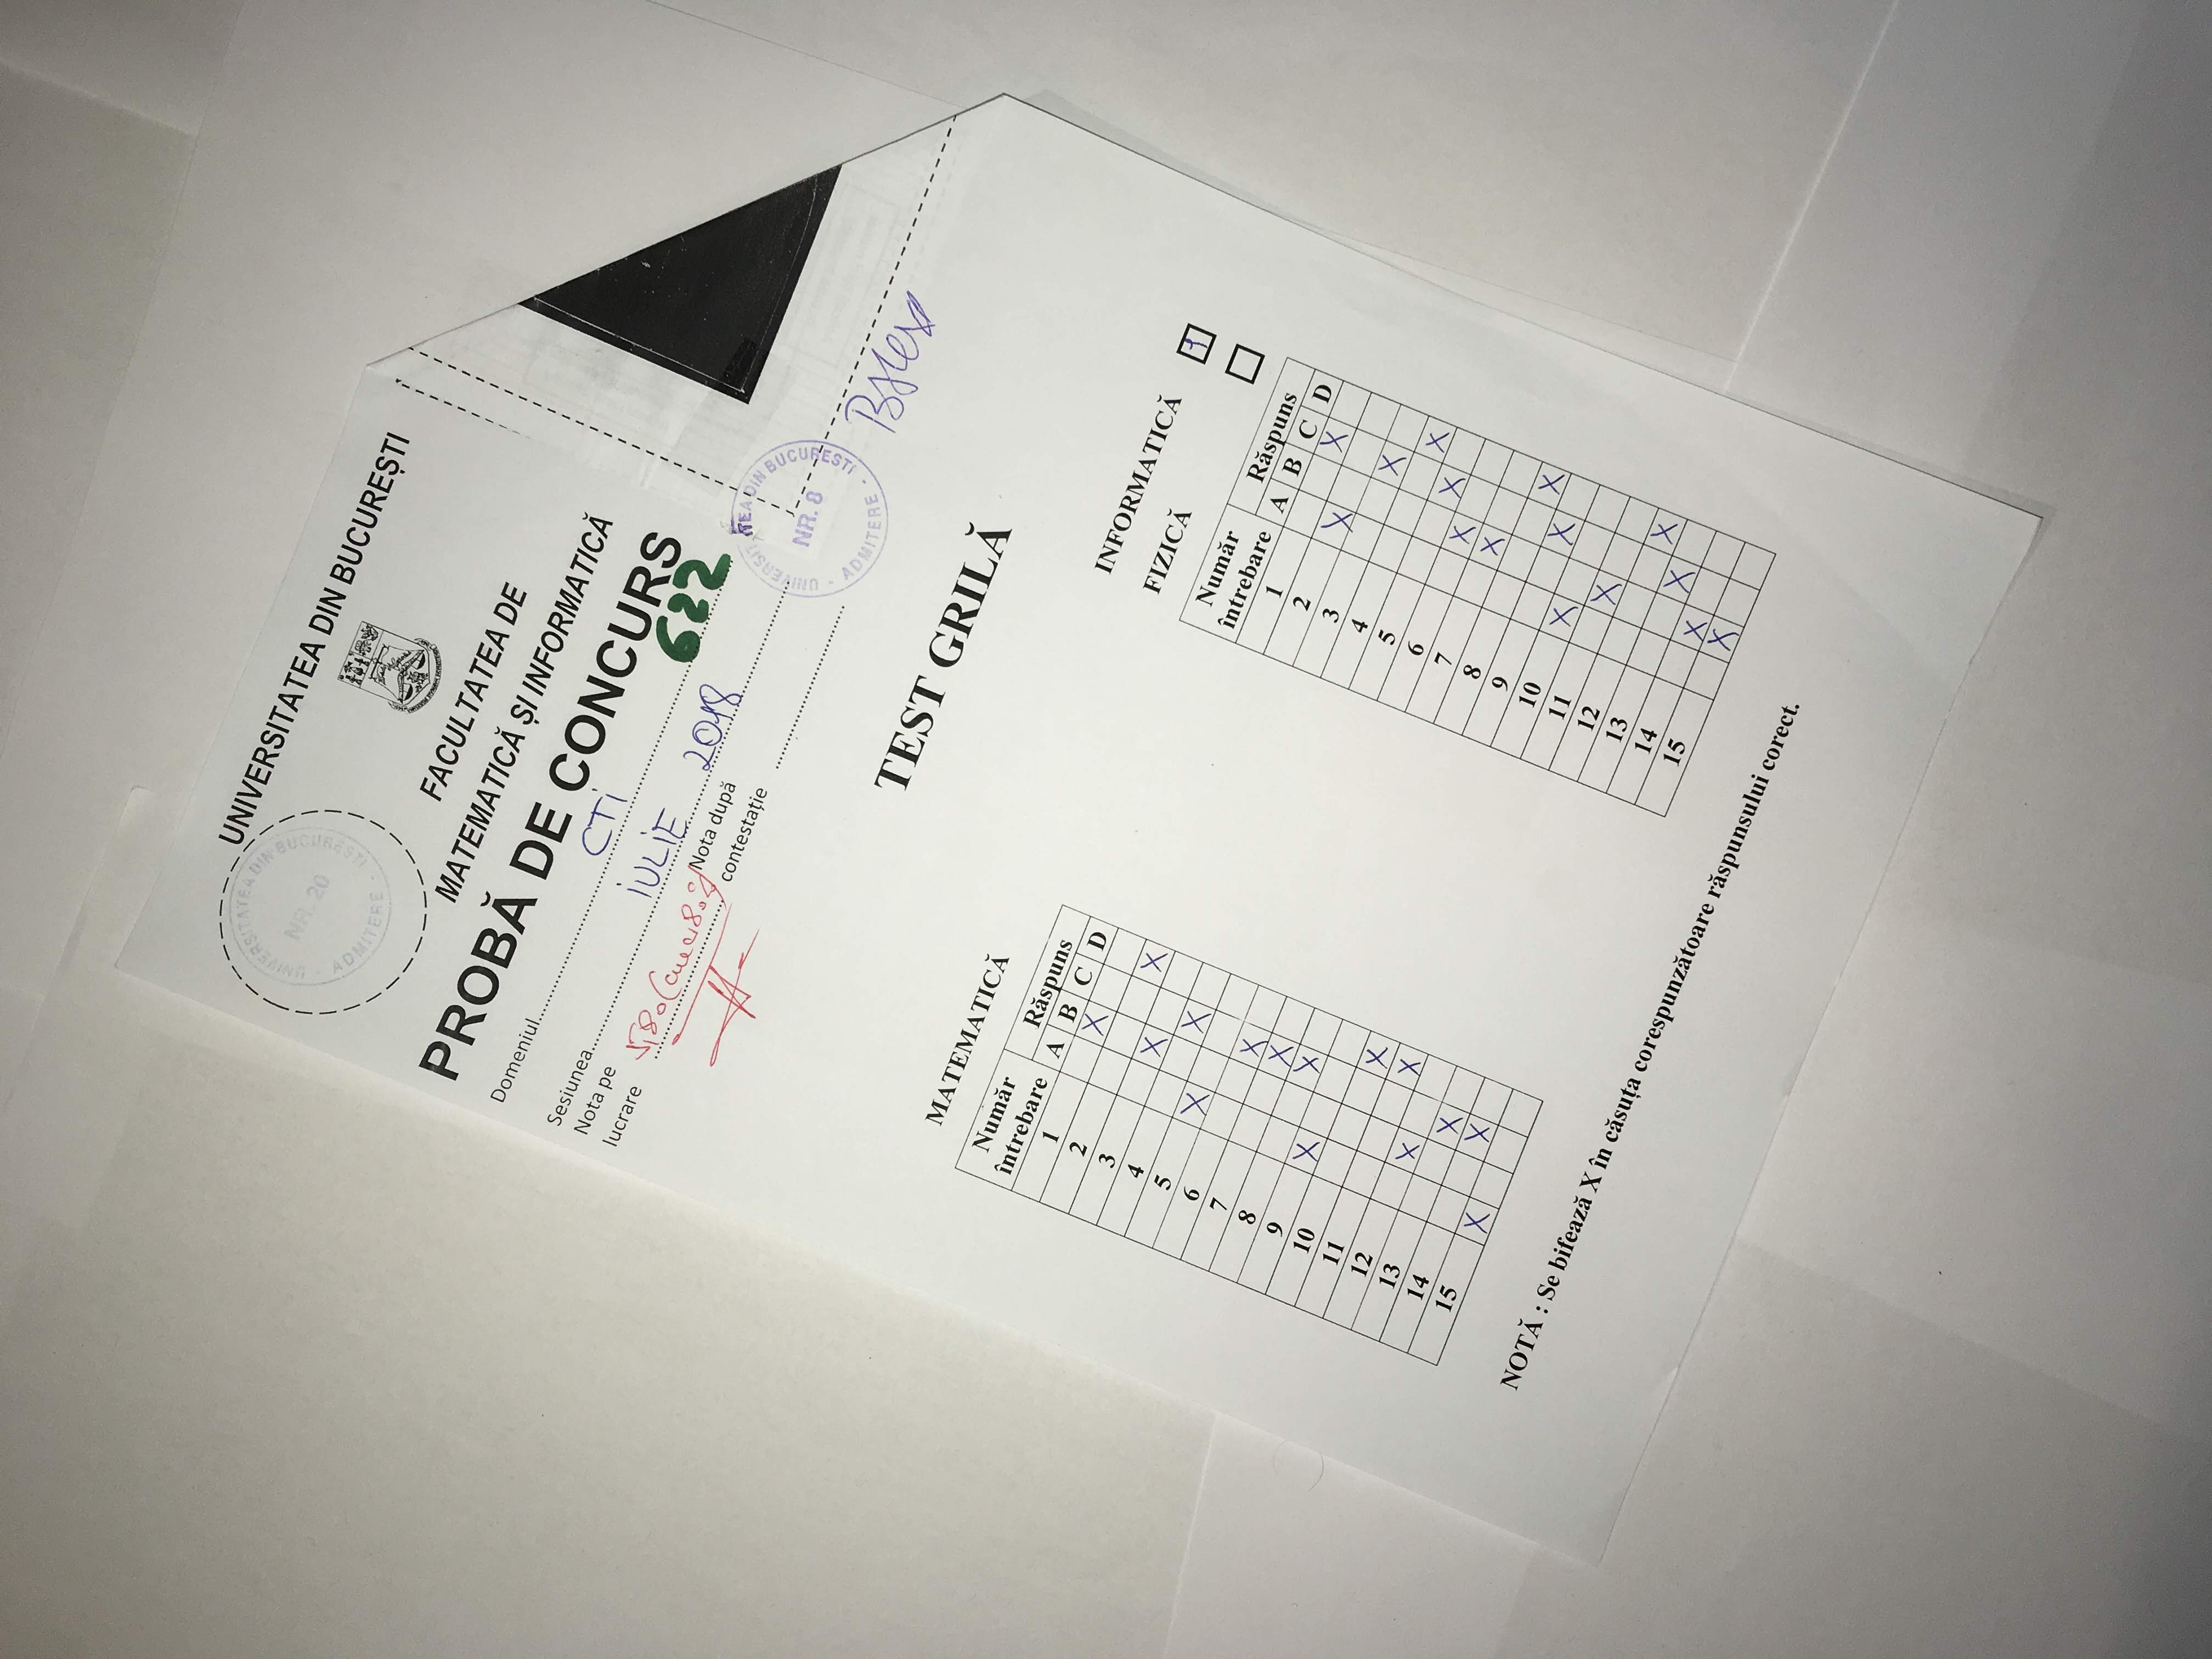 UNIVERSITATEA DIN BUCUREȘTI
UNIVERSITATEA DIN BUCUREȘTI - ADMITERE -
NR. 20
FACULTATEA DE
MATEMATICĂ ȘI INFORMATICĂ
PROBĂ DE CONCURS
Domeniul CTi
622
Sesiunea iULiE 2018
Nota pe
lucrare 5,80
Nota după
contestație
UNIVERSITATEA DIN BUCUREȘTI - ADMITERE -
NR. 8
TEST GRILĂ
MATEMATICĂ
Număr
întrebare
Răspuns
A B C D
1 X
2 X
3 X
4 X
5 X
6 X
7 X
8 X
9 X
10 X
11 X
12 X
13 X
14 X
15 X
INFORMATICĂ
FIZICĂ
Număr
întrebare
Răspuns
A B C D
1 X
2 X
3 X
4 X
5 X
6 X
7 X
8 X
9 X
10 X
11 X
12 X
13 X
14 X
15 X
NOTĂ : Se bifează X în căsuța corespunzătoare răspunsului corect.